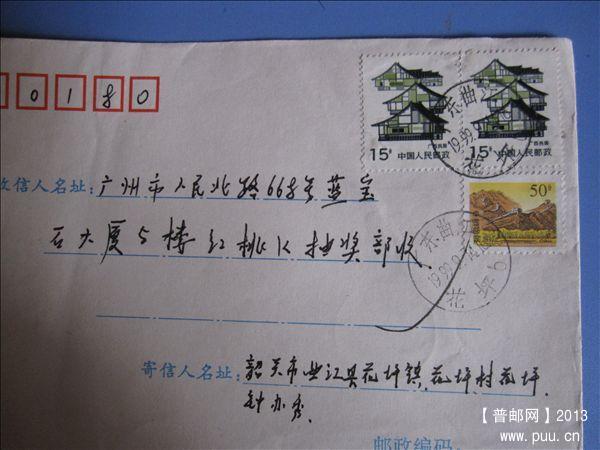 0 1 8 0
15分 中国人民邮政
15分 中国人民邮政
50分
收信人名址:广州市人民北路668号蓝宝
石大厦5楼红桃K抽奖部收
寄信人名址:韶关市曲江县花坪镇.花坪村花坪.
钟亦秀.
邮政编码
【普邮网】2013
www.puu.cn